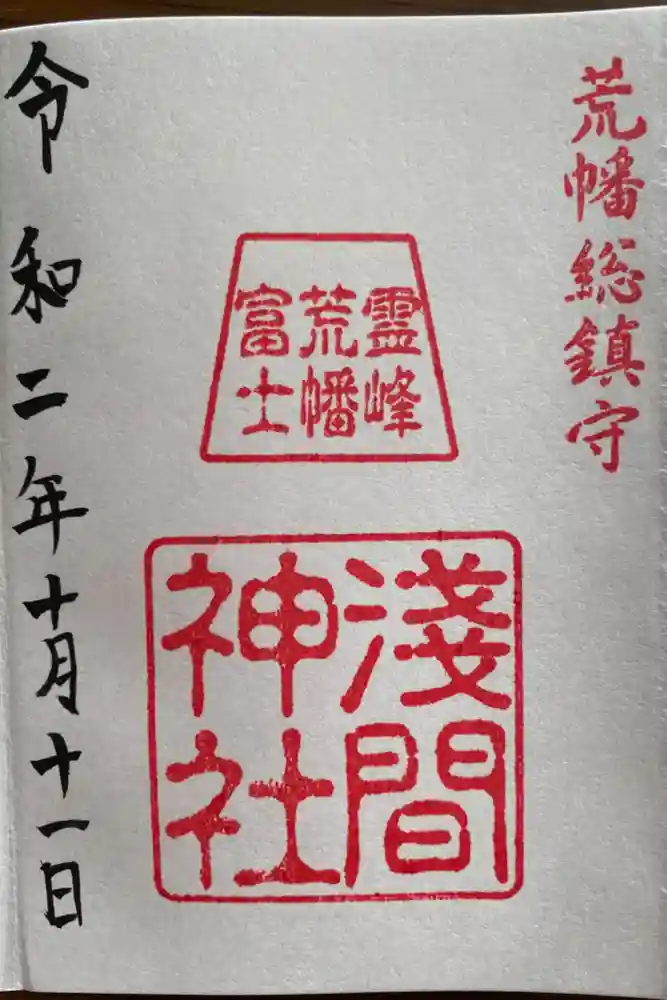 荒幡総鎮守
霊峰
荒幡
富士
淺間
神社
令和二年十月十一日